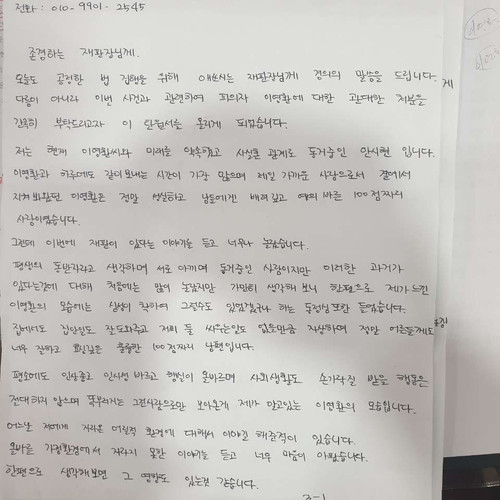 전화 : 010-9901-2545
존경하는 재판장님께.
오늘도 공정한 법 집행을 위해 애쓰시는 재판장님께 경의의 말씀을 드립니다.
다름이 아니라 이번 사건과 관련하여 피의자 이영환에 대한 관대한 처분을
간곡히 부탁드리고자 이 탄원서를 올리게 되었습니다.
저는 현재 이영환씨와 미래를 약속했고 사실혼 관계로 동거중인 안시현 입니다.
이영환과 하루에도 같이 보내는 시간이 가장 많으며 제일 가까운 사람으로서 곁에서
지켜봐왔던 이영환은 정말 성실하고 남들에겐 배려 깊고 예의 바른 100점짜리
사람이였습니다.
그런데 이번에 재판이 있다는 이야기를 듣고 너무나 놀랐습니다.
평생의 동반자라고 생각하며 서로 아끼며 동거중인 사람이지만 이러한 과거가
있다는것에 대해 처음에는 많이 놀랐지만 가만히 생각해 보니 한편으로 제가느낀
이영환의 모습에는 심성이 착하여 그럴수도 있었겠구나 하는 뚯정심또한 들었습니다.
집에서도 집안일도 잘 도와주고 저희 둘 싸우는일도 없을만큼 자상하며 정말 어른들께도
너무 잘하고 효심깊은 훌륭한 100점짜리 남편입니다.
평소에도 인사성도 인사성 바르고 행실이 올바르며 사회생활도 손가락질 받을 행동은
전혀하지 않으며 똑부러지는 그런사람으로만 보아온게 제가 알고있는 이영환의 모습입니다.
어느날 저에게 자라온 어릴적 환경에 대해서 이야기 해준적이 있습니다.
올바른 가정환경에서 자라지 못한 이야기를 듣고 너무 마음이 아팠습니다.
한편으로 생각해보면 그 영향도 있는것 같습니다.